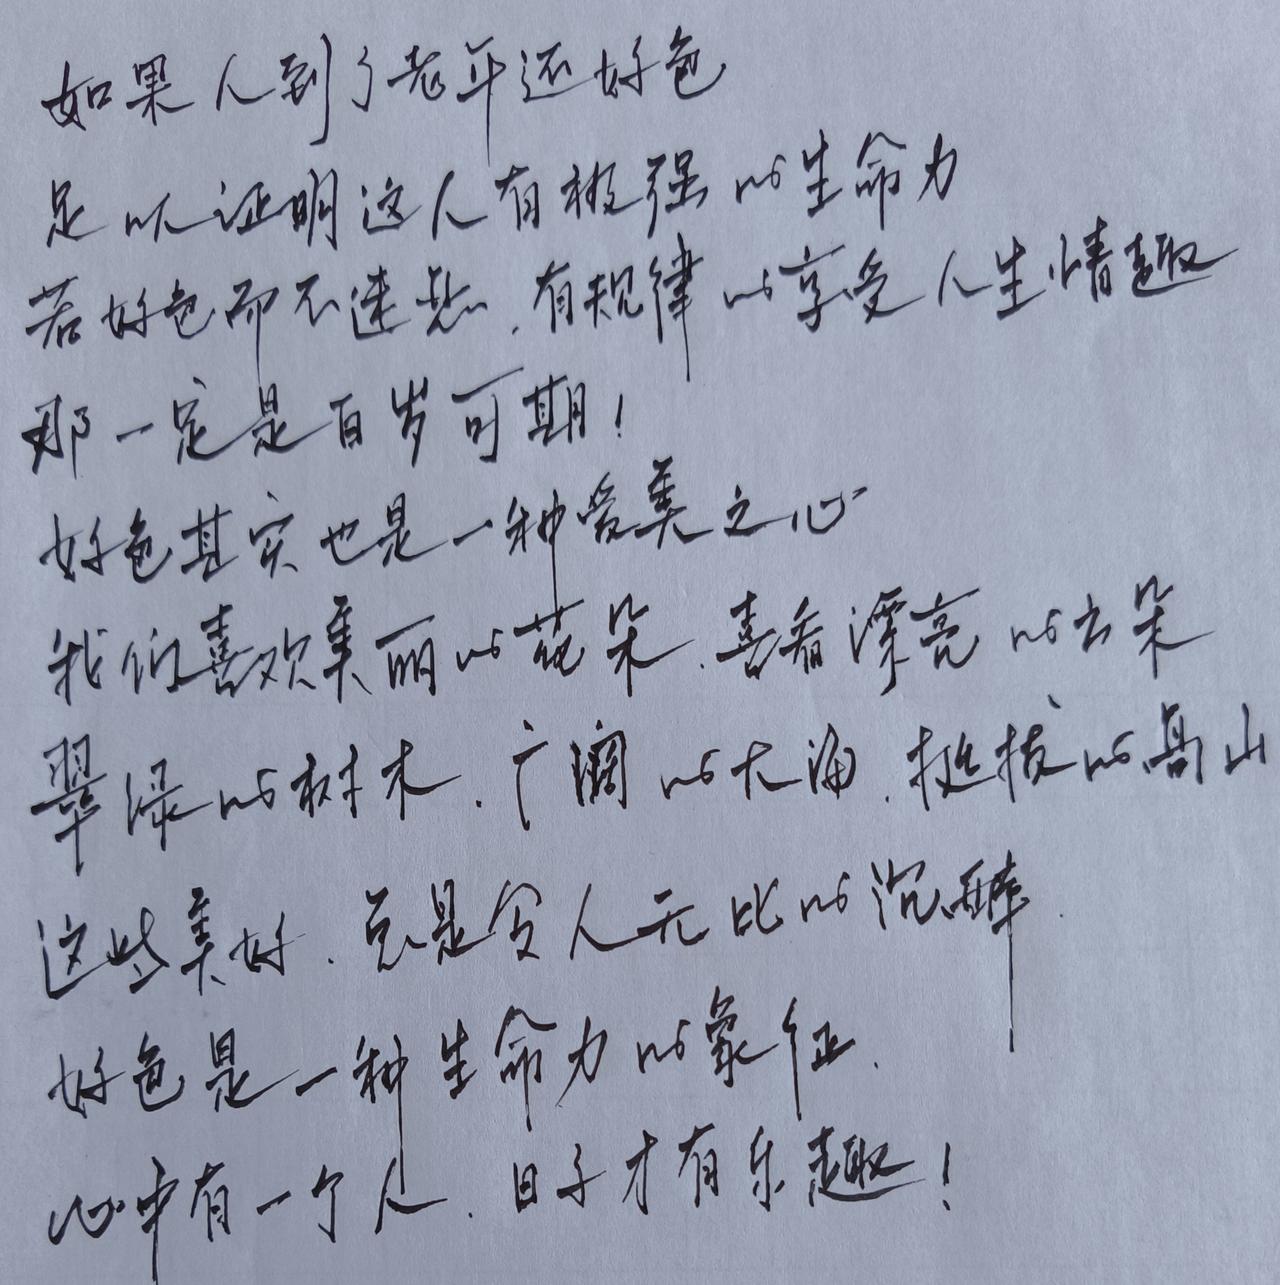 如果人到了老年还好色
足以证明这人有极强的生命力
若好色而不迷愁.有规律的享受人生情趣
那一定是百岁可期!
好色其实也是一种爱美之心
我们喜欢美丽的花朵.喜看漂亮的云朵
翠绿的树木.广阔的大海.挺拔的高山
这些美好.总是令人无比的沉醉.
好色是一种生命力的象征.
心中有一个人.日子才有乐趣!